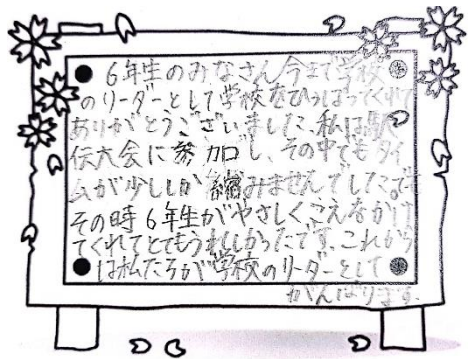 6年生のみなさん今まで学校
のリーダーとして学校をひっぱってくれて
ありがとうございました、私は駅
伝大会に参加し、その中でもタイ
ムが少ししか縮みませんでした。でも
その時6年生がやさしく、こえをかけ
てくれてとてもうれしかったです。これから
は私たちが学校のリーダーとして
がんばります。